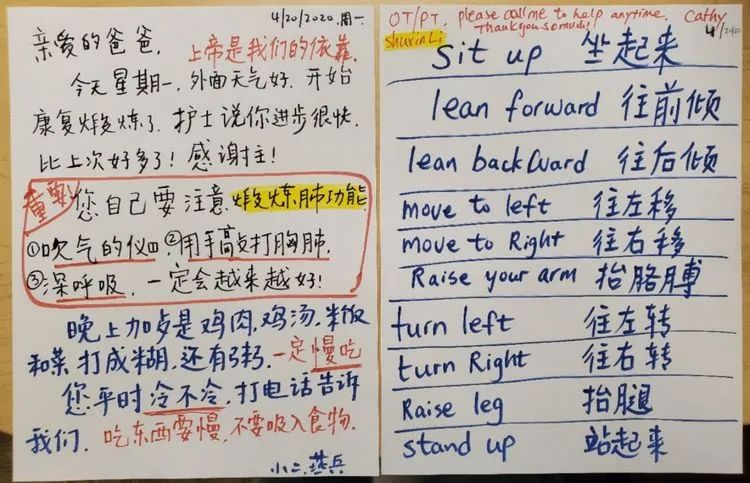 4/20/2020.周一
亲爱的爸爸,
上帝是我们的依靠.
今天星期一,外面天气好.开始
康复煅炼了.护士说你进步很快.
比上次好多了!感谢主!
重要! 您自己要注意.煅炼肺功能
①吹气的仪四 ②用手敲打胸肺.
③深呼吸,一定会越来越好!
晚上加步是鸡肉,鸡汤.米饭
和菜.打成糊.还有粥.一定慢吃
您平时冷不冷,打电话告诉
我们.吃东西要慢.不要吸入食物.
小二.燕兵
OT/PT, please call me to help anytime. Cathy
Shuxin Li Thank you so much! 4/20/20
sit up 坐起来
lean forward 往前倾
lean backward 往后倾
move to left 往左移
move to Right 往右移
Raise your arm 抬胳膊
turn left 往左转
turn Right 往右转
Raise leg 抬腿
stand up 站起来